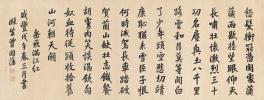 怒髮衝冠憑闌處瀟
瀟雨歇擡望眼仰天
長嘯壯懷激烈三十
功名塵與土八千里
路雲和月莫等閒白
了少年頭空悲切靖
康恥猶未雪臣子恨
何時滅駕長車踏破
賀蘭山缺壯志飢餐
胡虜肉笑談渴飲匈
奴血待從頭收拾舊
山河朝天闕
岳飛滿江紅
咸豐戊午春三月書
滌生曾國藩